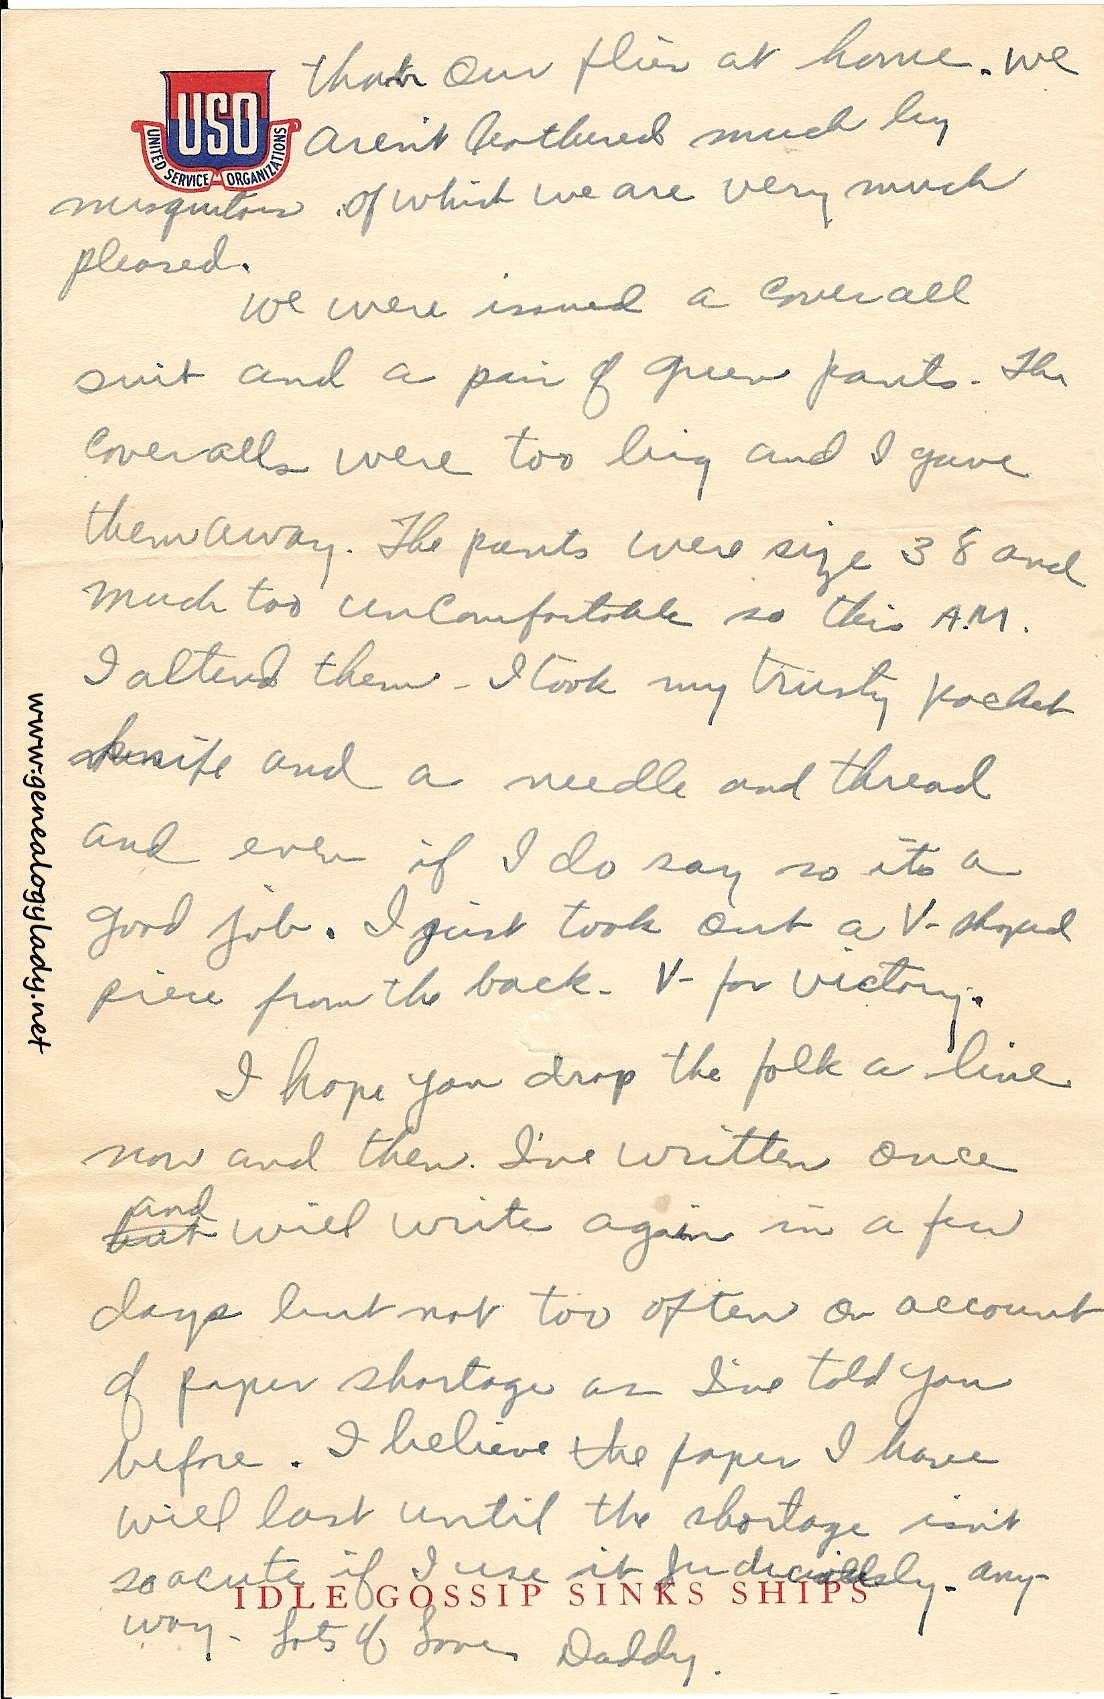 USO
UNITED SERVICE ORGANIZATIONS
than our flies at home. We
aren't bothered much by
mosquitoes of which we are very much
pleased.
We were issued a coverall
suit and a pair of green pants. The
coveralls were too big and I gave
them away. The pants were size 38 and
much too uncomfortable so this A.M.
I altend them - I took my trusty pocket
knife and a needle and thread
and even if I do say so its a
good job. I just took out a V-shaped
piece from the back - V- for victory.
I hope you drop the folk a line
now and then. I've written once
but and will write again in a few
days but not too often on account
of paper shortage as I've told you
before. I believe the paper I have
will last until the shortage isn't
so acute if I use it judiciously - any-
way - Lots of Love, Daddy.
IDLE GOSSIP SINKS SHIPS
www.genealogylady.net